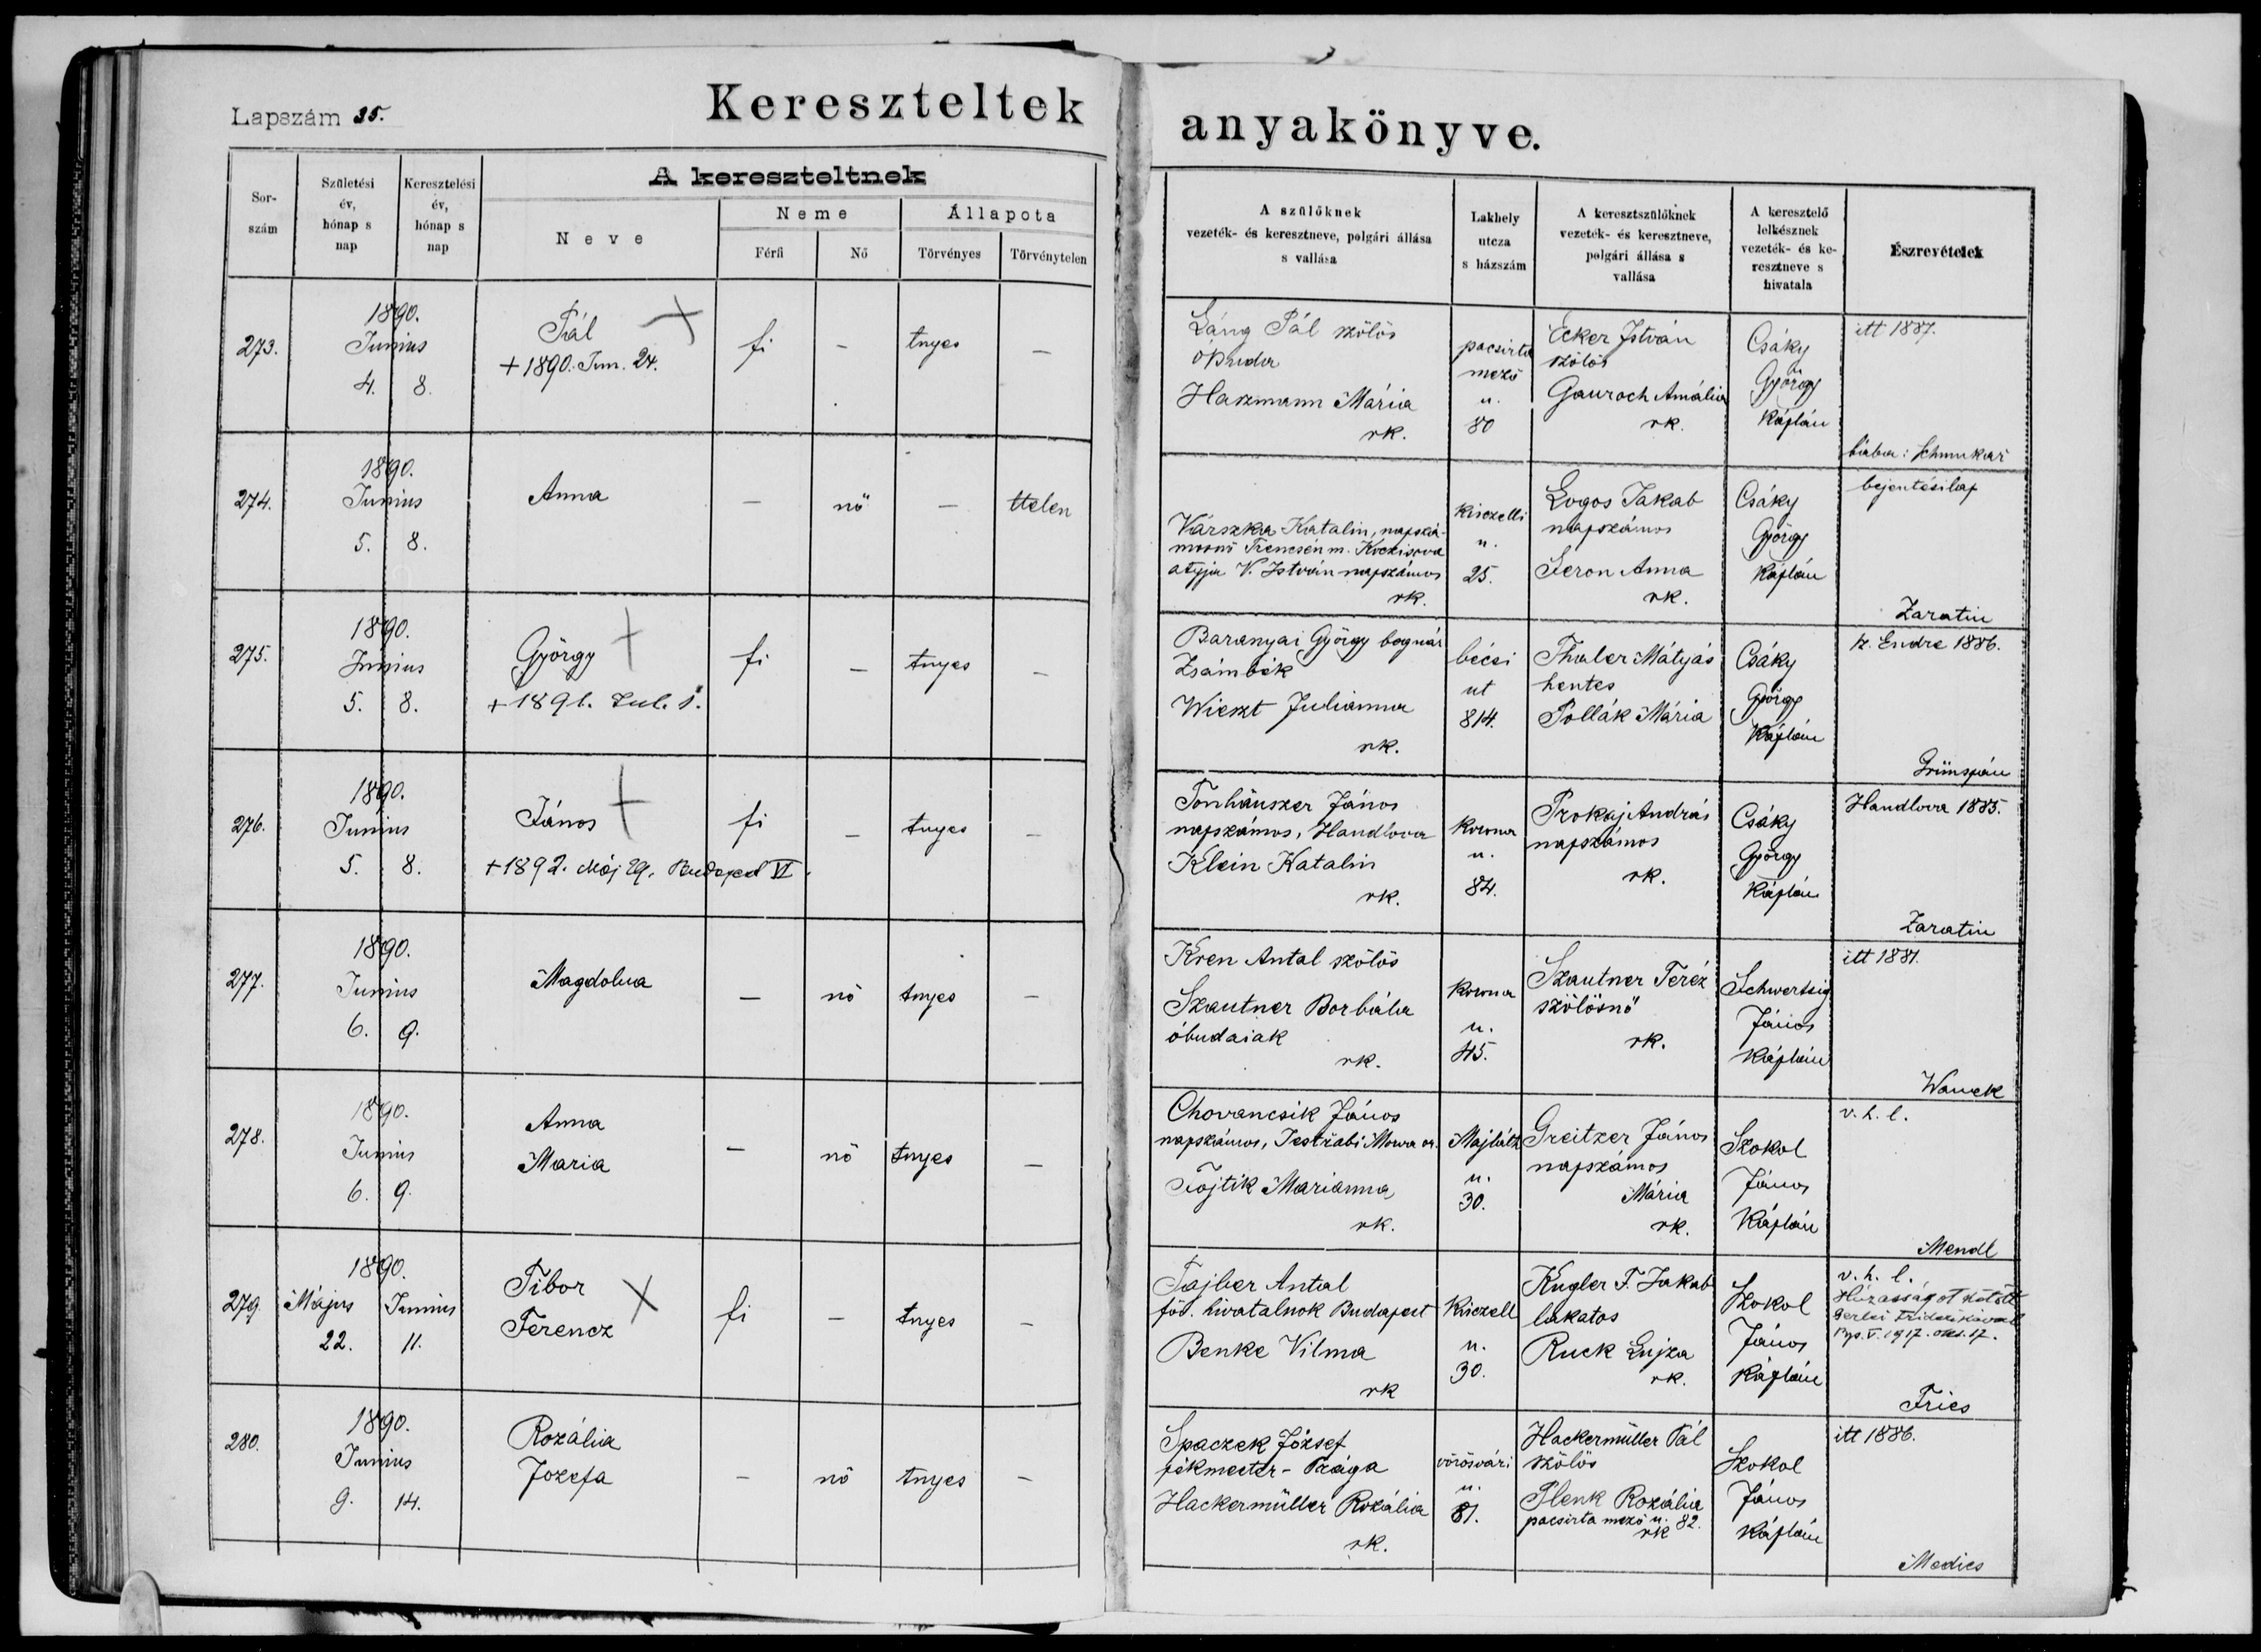 Lapszám 35.
Kereszteltek anyakönyve.
Sor-
szám
Születési
év,
hónap s
nap
Keresztelési
év,
hónap s
nap
A kereszteltnek
Neve
Neme
Férfi
Nő
Állapota
Törvényes
Törvénytelen
A szülőknek
vezeték- és keresztneve, polgári állása
s vallása
Lakhely
utcza
s házszám
A keresztszülőknek
vezeték- és keresztneve,
polgári állása s
vallása
A keresztelő
lelkésznek
vezeték- és ke-
resztneve s
hivatala
Észrevételek
273.
1890.
Junius
4. 8.
Pál
+ 1890. Jun. 24.
fi
–
tnyes
–
Láng Pál szőlős
óbuda
Haszmann Mária
rk.
pacsirta
mező
u.
80
Ecker István
szőlős
Gauroch Amália
rk.
Csáky
György
Káplán
itt 1887.
bába: Schmukar
274.
1890.
Junius
5. 8.
Anna
–
nő
–
ttelen
Várszka Katalin, napszá-
mosnő Trencsén m.
atyja V. István napszámos
rk.
Kiczelli
u.
25.
Logos Jakab
napszámos
Feron Anna
rk.
Csáky
György
Káplán
bejentésilap
Zaratin
275.
1890.
Junius
5. 8.
György
+ 1891. Jul. 1.
fi
–
tnyes
–
Baranyai György bognár
Zsámbék
Wieszt Julianna
rk.
bécsi
ut
814.
Thaler Mátyás
hentes
Pollák Mária
Csáky
György
Káplán
sz. Endre 1886.
Grünspán
276.
1890.
Junius
5. 8.
János
+ 1892. Máj 29. Budapest VI.
fi
–
tnyes
–
Tonhäuszer János
napszámos, Handlova
Klein Katalin
rk.
Korona
u.
84.
Prokaj András
napszámos
rk.
Csáky
György
Káplán
Handlova 1885.
Zaratin
277.
1890.
Junius
6. 9.
Magdolna
–
nő
tnyes
–
Kren Antal szőlős
Szautner Borbála
óbudaiak
rk.
Korona
u.
45.
Szautner Teréz
szőlősnő
rk.
Schwertsig
János
Káplán
itt 1881.
Wanek
278.
1890.
Junius
6. 9.
Anna
Maria
–
nő
tnyes
–
Chovancsik János
napszámos, Jestřabi Morva or.
Fojtik Marianna
rk.
Majláth
u.
30.
Greitzer János
napszámos
Mária
rk.
Szokol
János
Káplán
v. h. l.
Mendl
279.
1890.
Május Junius
22. 11.
Tibor
Ferencz
fi
–
tnyes
–
Tajber Antal
föv. hivatalnok Budapest
Benke Vilma
rk
Kiczell
u.
30.
Kugler F. Jakab
lakatos
Ruck Lujza
rk.
Szokol
János
Káplán
v. h. l.
Házasságot kötött
Bp. V. 1917. okt. 17.
Fries
280.
1890.
Junius
9. 14.
Rozália
Jozefa
–
nő
tnyes
–
Spaczek József
pékmester - Prága
Hackermüller Rozália
rk.
vörösvári
u.
81.
Hackermüller Pál
szőlős
Plenk Rozália
pacsirta mező u. 82.
rk
Szokol
János
Káplán
itt 1886.
Medics